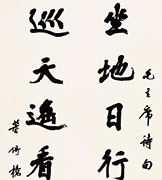 坐地日行
巡天遥看
毛主席诗句